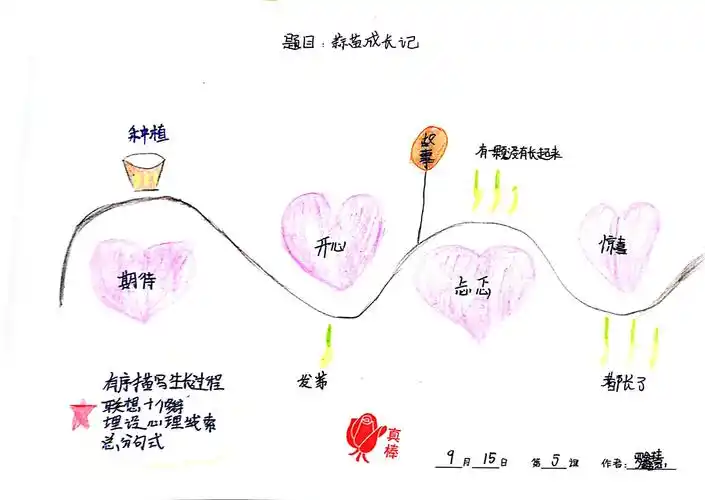 题目：蒜苗成长记
种植
故事
有一颗没有长起来
期待
开心
忐忑
惊喜
发芽
都长了
有序描写生长过程
联想
埋设心理线索
总分句式
真棒
9月15日 第5课 作者：